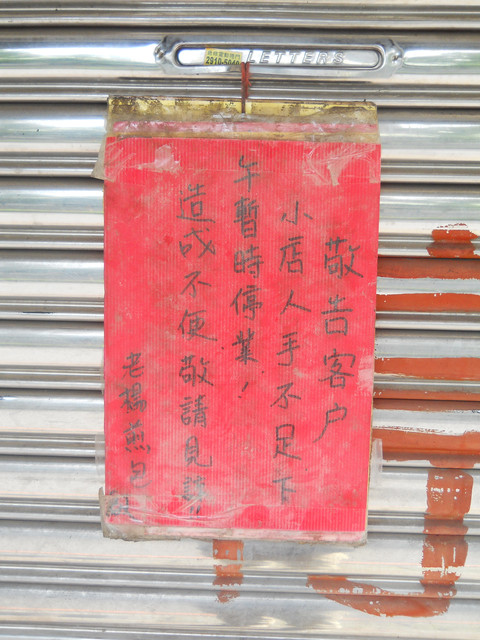 LETTERS
敬告客户
小店人手不足下
午暫時停業！
造成不便敬請見諒
老楊煎包